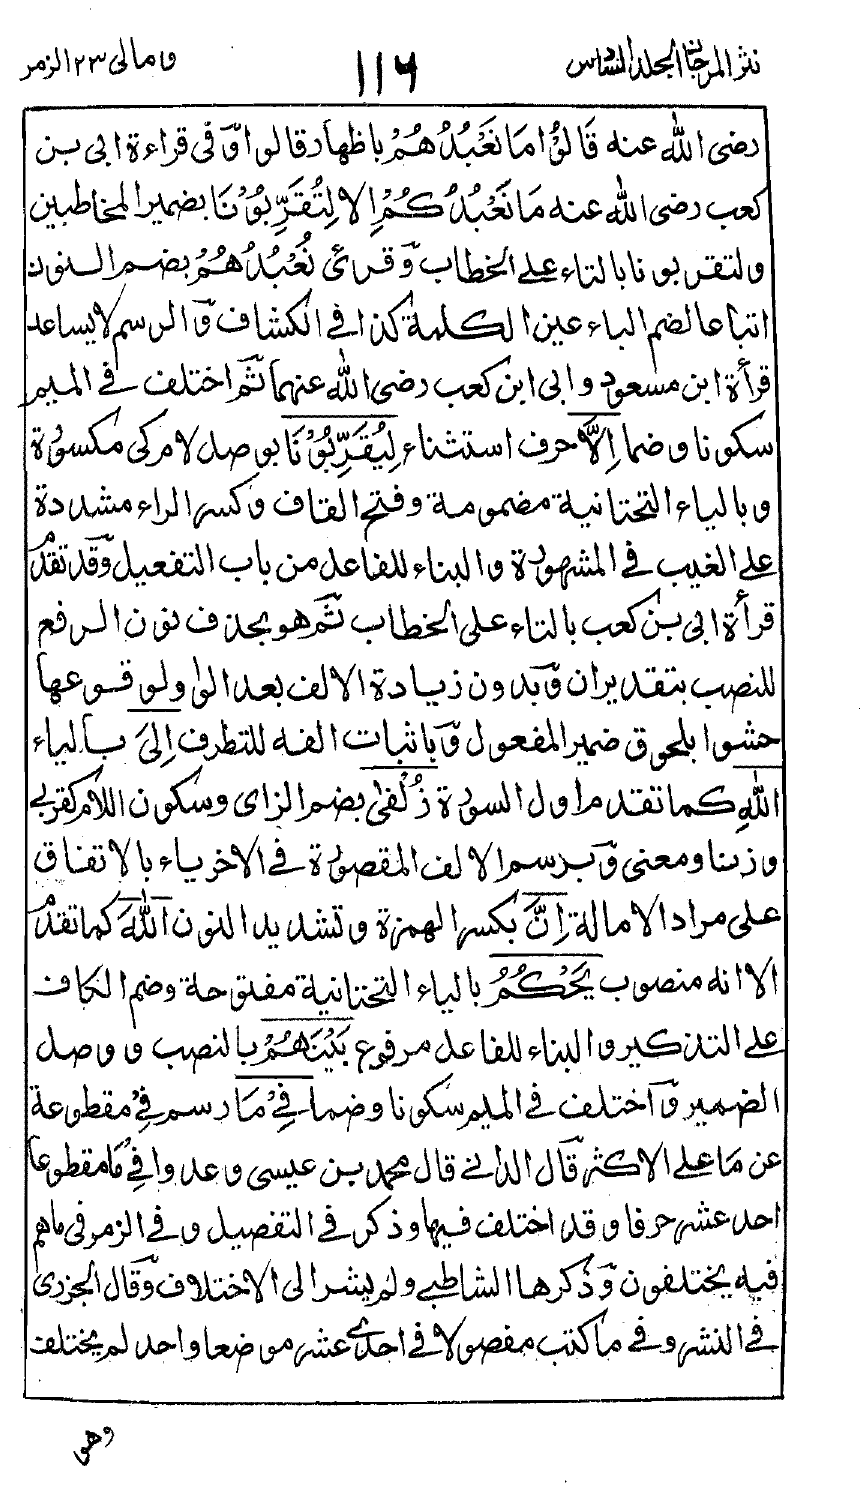 نثر المرجان المجلد السادس ١١٦ ومالی ٢٣ الزمر
رضی الله عنه قَالُوْا مَا نَعْبُدُهُمْ باظهار قالوا وّ فی قراءة ابی بن
کعب رضی الله عنه مَا نَعْبُدُكُمْ اِلا لِتُقَرِّبُوْنَا بضمیر المخاطبین
ولتقربونا بالتاء علی الخطاب وّ قرئ نُعْبُدُهُمْ بضم النون
اتباعا لضم الباء عین الکلمة کذا فی الکشاف وّ الرسم لا یساعد
قرأة ابن مسعود و ابی ابن کعب رضی الله عنهما ثمّ اختلف فی المیم
سکونا وضما اِلَّا حرف استثناء لِيُقَرِّبُوْنَا بوصل لام کی مکسورة
وبالیاء التحتانیة مضمومة وفتح القاف وکسر الراء مشددة
علی الغیب فی المشهورة والبناء للفاعل من باب التفعیل وّقد تقدم
قرأة ابی بن کعب بالتاء علی الخطاب ثمّ هو بحذف نون الرفع
للنصب بتقدیر ان وّ بدون زیادة الالف بعد الواو لوقوعها
حشوا بلحوق ضمیر المفعول وّ باثبات الفه للتطرف اِلَى بالیاء
اللّٰهِ کما تقدم اول السورة زُلْفٰی بضم الزای وسکون اللام کقربی
وزنا ومعنی وّ برسم الالف المقصورة فی الاخر یاء بالاتفاق
علی مراد الامالة اِنَّ بکسر الهمزة وتشدید النون اللّٰهَ کما تقدم
الا انه منصوب يَحْكُمُ بالیاء التحتانیة مفتوحة وضم الکاف
علی التذکیر والبناء للفاعل مرفوع بَيْنَهُمْ بالنصب ووصل
الضمیر وّ اختلف فی المیم سکونا وضما فِیْ مَا رسم فِیْ مقطوعة
عن مَا علی الاکثر قّال الدانی قال محمد بن عیسی وعدوا فِیْ مَا مقطوعا
احد عشر حرفا وقد اختلف فیها وذکر فی التفصیل وفی الزمر فی ما هم
فیه یختلفون وّ ذکرها الشاطبی ولم یشر الی الاختلاف وّقال الجزری
فی النشر وفی ما کتب مفصولا فی احدی عشر موضعا واحد لم یختلف
وهو